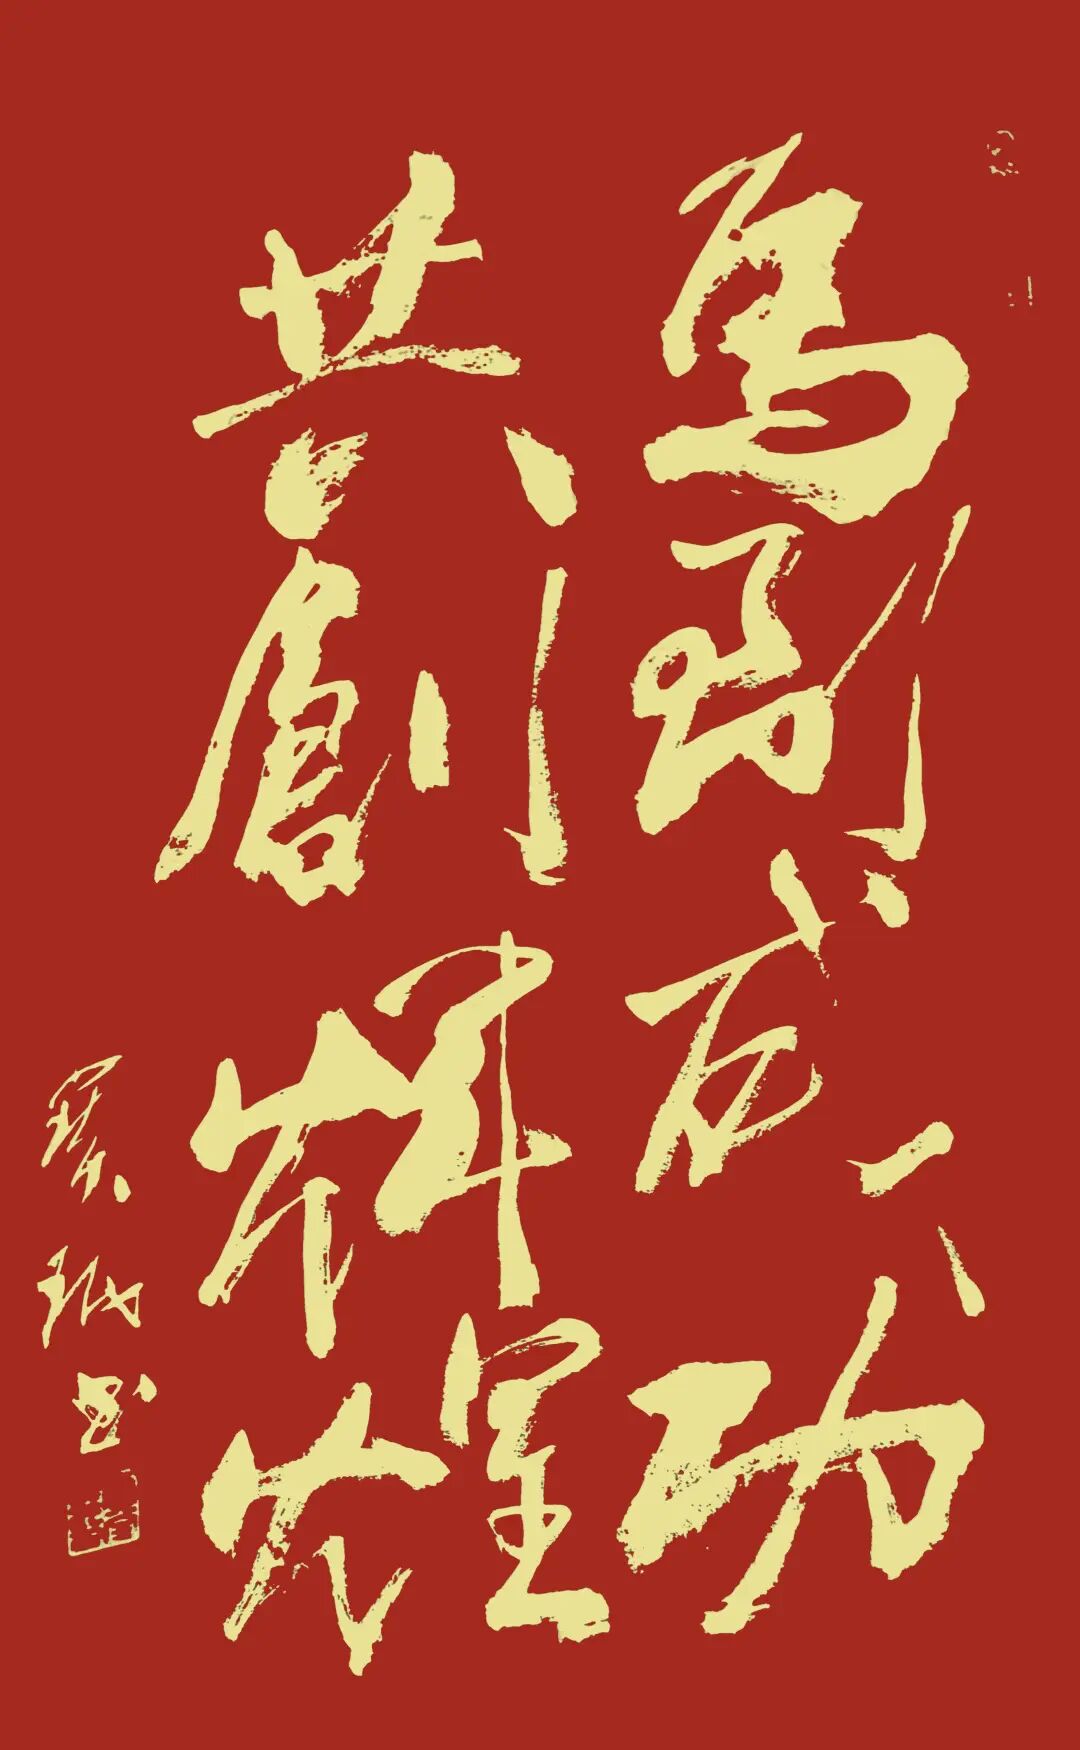 馬到成功
共創輝煌